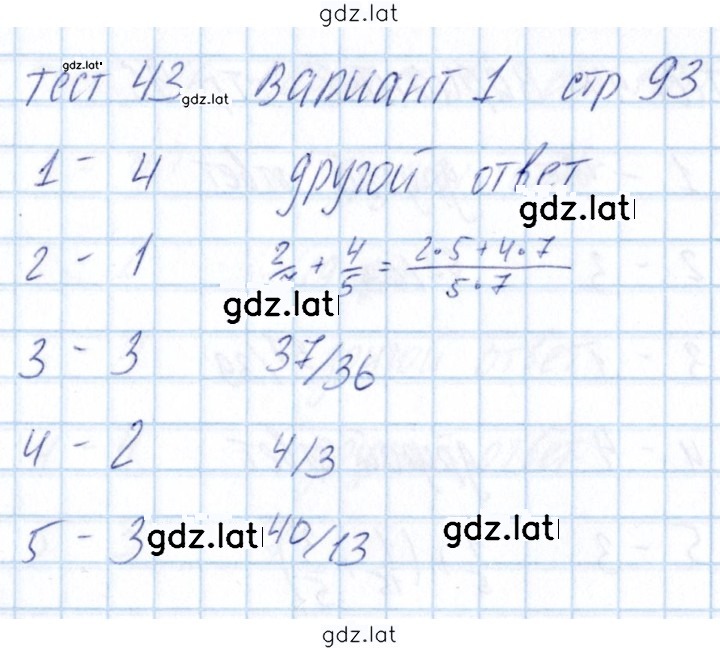 gdz.lat
gdz.lat
тест 43 Вариант 1 стр 93
gdz.lat
1 - 4 другой ответ
gdz.lat
2 - 1 2/7 + 4/5 = 2•5+4•7/5•7
gdz.lat
3 - 3 37/36
4 - 2 4/3
5 - 3 40/13
gdz.lat gdz.lat
gdz.lat